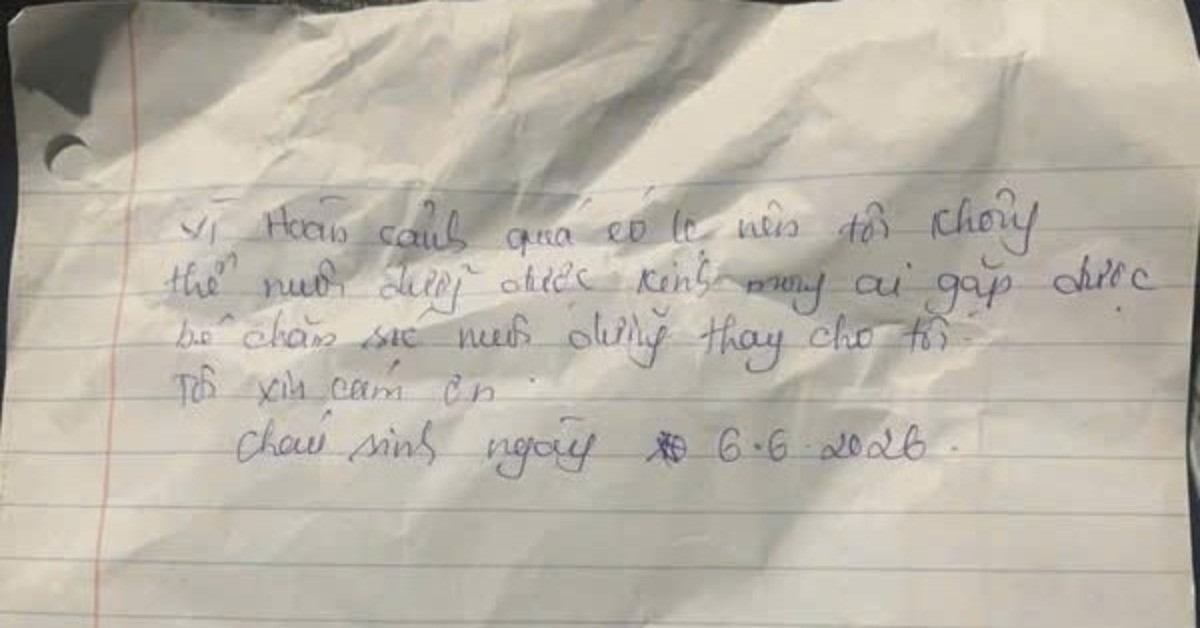 Vì Hoàn cảnh quá éo le nên tôi không
thể nuôi dưỡng được kính mong ai gặp được
bé chăm sóc nuôi dưỡng thay cho tôi.
Tôi xin cám ơn.
Cháu sinh ngày 6.6.2026.